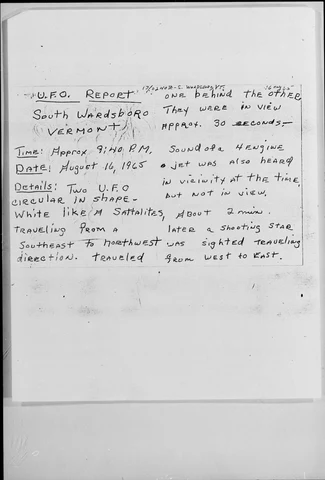 U.F.O. REPORT
SOUTH WARDSBORO
VERMONT
TIME: APPROX 9:40 P.M.
DATE: AUGUST 16, 1965
DETAILS: TWO U.F.O
CIRCULAR IN SHAPE -
WHITE LIKE SATTALITES,
TRAVELING FROM A
SOUTHEAST TO NORTHWEST
DIRECTION. TRAVELED
ONE BEHIND THE OTHER.
THEY WERE IN VIEW
APPROX. 30 SECONDS. -
SOUND OF A 4 ENGINE
JET WAS ALSO HEARD
IN VICINITY AT THE TIME,
BUT NOT IN VIEW.
ABOUT 2 MIN.
LATER A SHOOTING STAR
WAS SIGHTED TRAVELING
FROM WEST TO EAST.